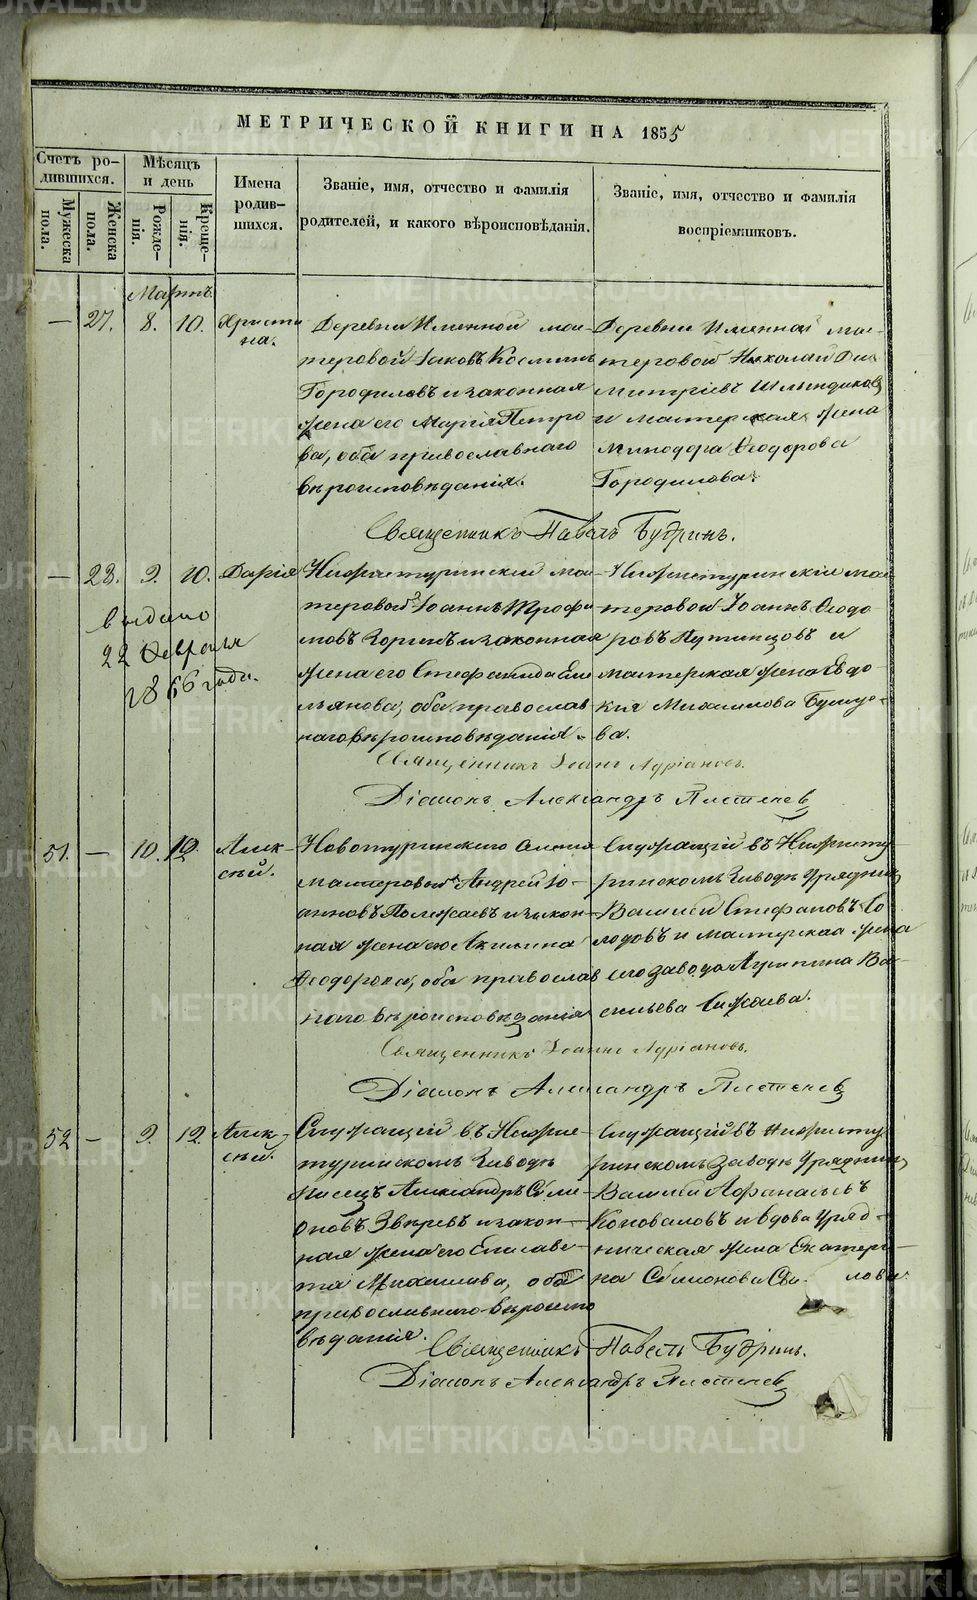 МЕТРИЧЕСКОЙ КНИГИ НА 1855
Счетъ ро-
дившихся.
Мужеска
пола.
Женска
пола.
Мѣсяцъ
и день
Рожде-
нія.
Креще-
нія.
Имена
родив-
шихся.
Званіе, имя, отчество и фамилія
родителей, и какого вѣроисповѣданія.
Званіе, имя, отчество и фамилія
воспріемниковъ.
Мартъ
— 27. 8. 10. Христи
на.
Деревни Именной мас-
теровой Іаковъ Косминъ
Городиловъ и законная
жена его Марія Петро
ва, оба православнаго
вѣроисповѣданія.
Деревни Именной мас-
теровой Николай Ди
митріевъ
и мастерская жена
Минодора Ѳеодорова
Городилова.
Священникъ Павелъ Будринъ.
— 28. 9. 10. Дарія
выдано
22 Февраля
1866 года.
Нижнетуринскій мас-
теровой Іоаннъ Трофи
мовъ Зоринъ и законная
жена его Стефанида Еме
льянова, оба православ
наго вѣроисповѣданія.
Нижнетуринскій мас
теровой Іоаннъ Ѳеодо
ровъ Путимцовъ и
мастерская жена Евдо
кія Михаилова
ва.
Священникъ Іоаннъ Адріановъ.
Діаконъ Александръ Плетеневъ
51. — 10. 12. Алек-
сѣй.
Новотуринскаго селенія
мастеровой Андрей Іо-
анновъ Полежаевъ и закон-
ная жена его Акилина
Ѳеодорова, оба православ
наго вѣроисповѣданія
Служащій въ Нижнету-
ринскомъ Заводѣ Урядникъ
Василій Стефановъ Со
лодовъ и мастерская жена
сего завода Агрипина Ва-
сильева Сажаева.
Священникъ Іоаннъ Адріановъ.
Діаконъ Александръ Плетеневъ
52 — 9. 12. Алек-
сѣй.
Служащій въ Нижне-
туринскомъ Заводѣ
Писецъ Александръ Сѷме
оновъ Звѣревъ и закон-
ная жена его Елисаве-
та Михаилова, оба
православнаго вѣроиспо
вѣданія.
Служащій въ Нижнету
ринскомъ Заводѣ Урядникъ
Василій Аѳанасьевъ
Коноваловъ и вдова Уряд-
ническая жена Екатери-
на Сѷмионова
Священникъ Павелъ Будринъ.
Діаконъ Александръ Плетеневъ
METRIKI.GASO-URAL.RU